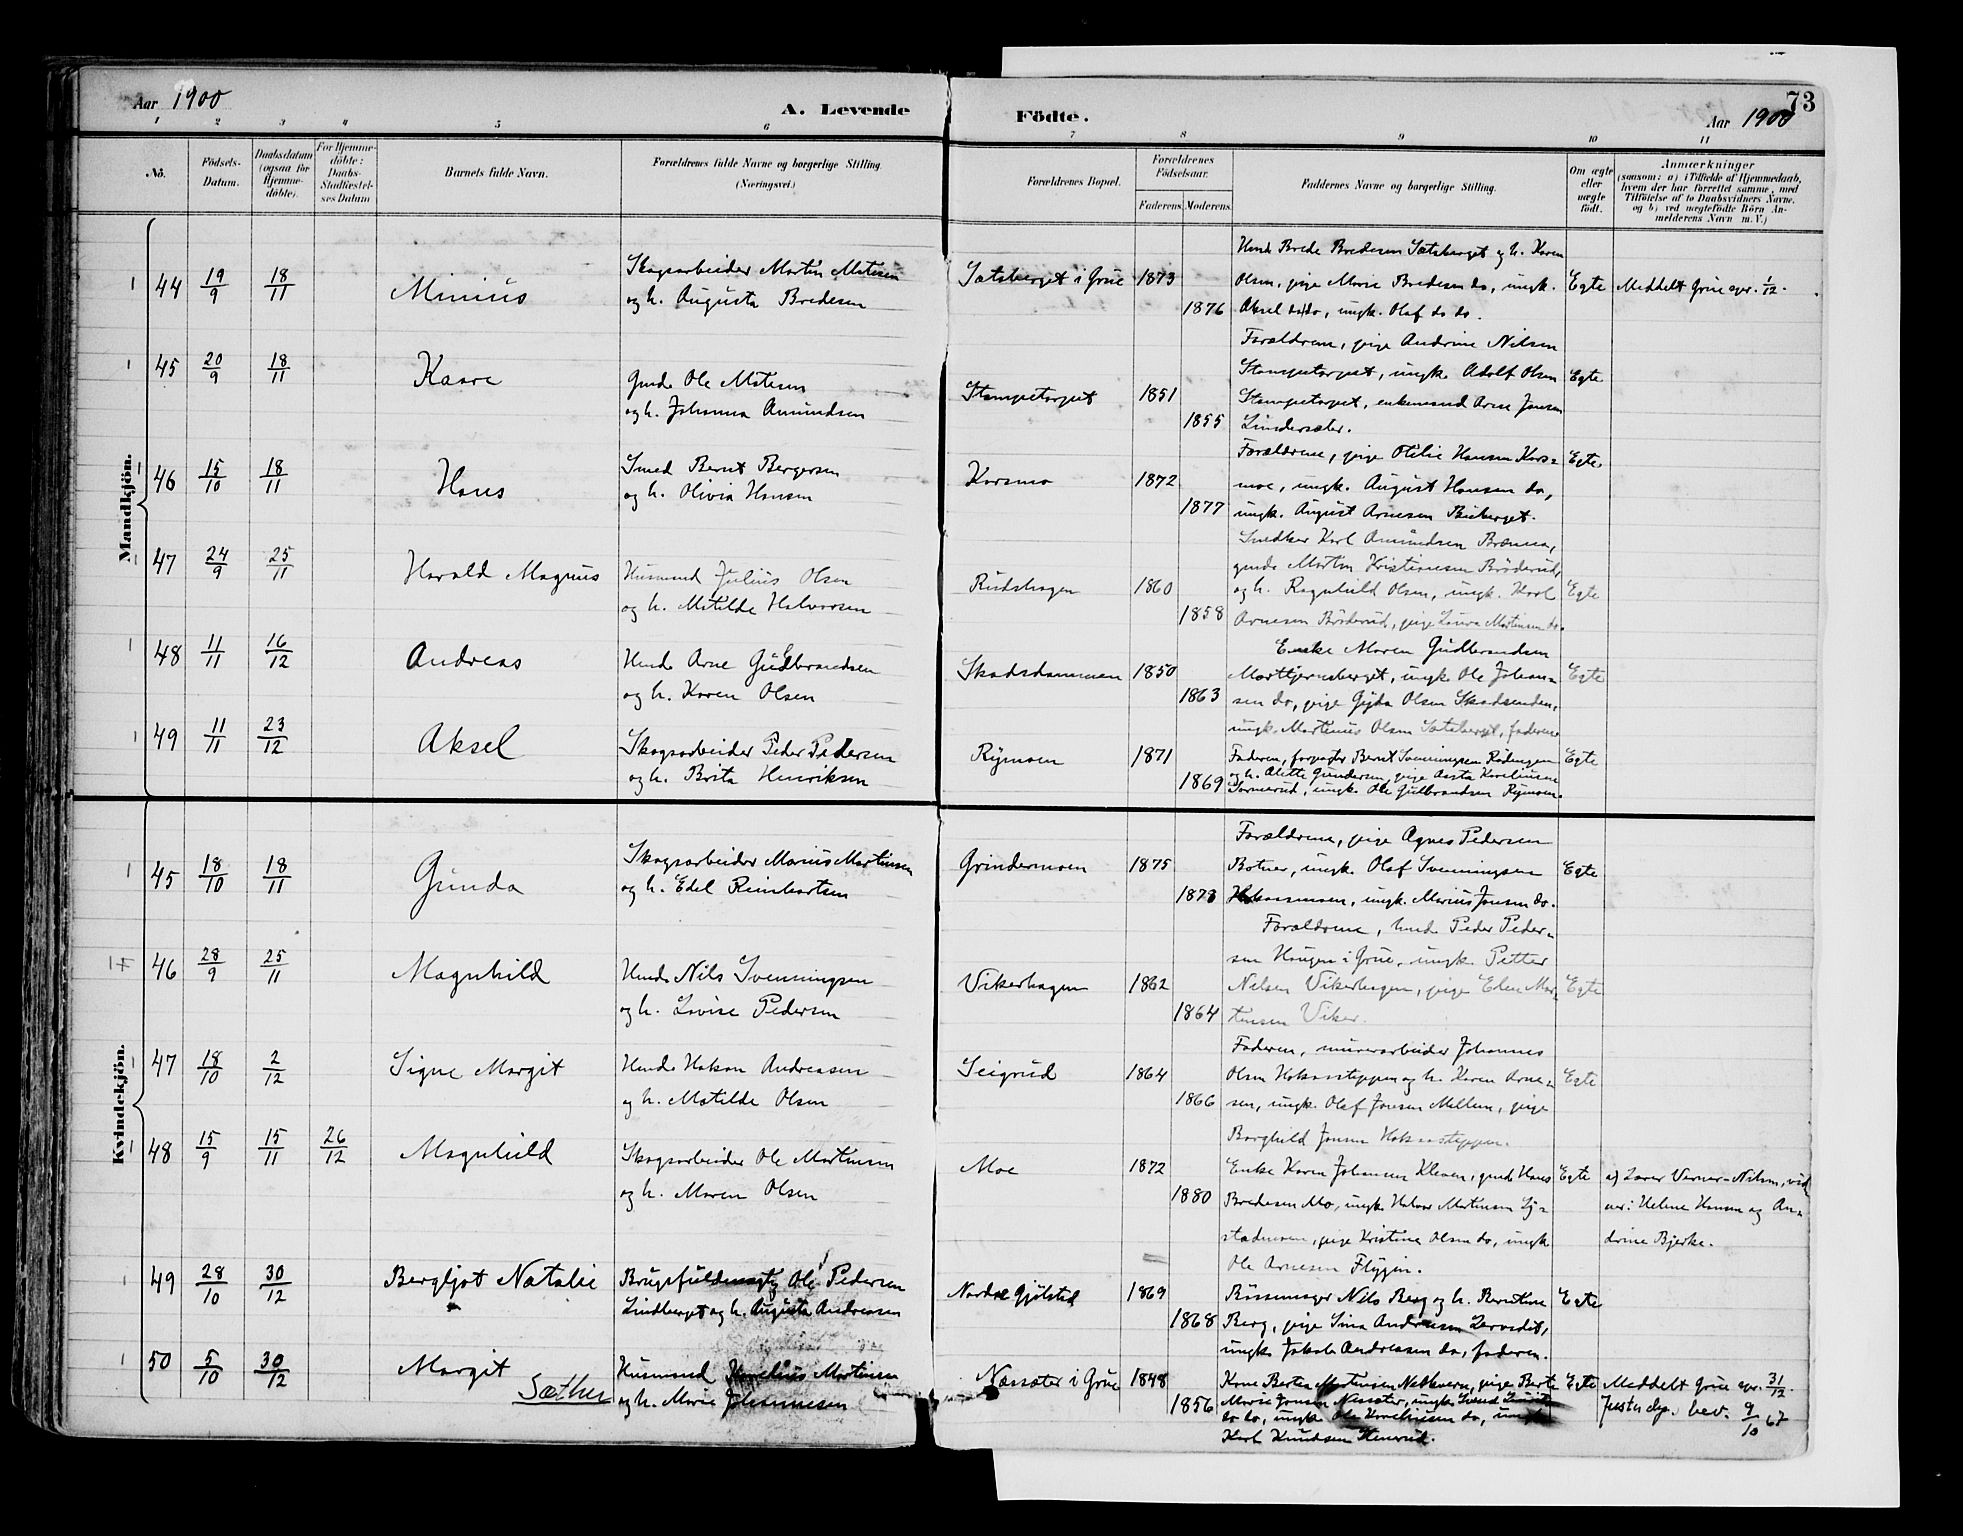 Aar 1900
A. Levende
Födte.
73
Aar 1900
1 2 3 4 5 6 7 8 9 10 11
No.
Födsels-
Datum.
Daabsdatum
(ogsaa for
Hjemme-
döbte).
For Hjemme-
döbte:
Daabs-
Stadfæstel-
ses Datum
Barnets fulde Navn.
Forældrenes fulde Navne og borgerlige Stilling
(Næringsvei.)
Forældrenes Bopæl.
Forældrenes
Födselsaar.
Faderens Moderens
Faddernes Navne og borgerlige Stilling.
Om ægte
eller
uægte
födt.
Anmærkninger
(saasom: a) i Tilfælde af Hjemmedaab,
hvem der har forrettet samme, med
Tilföielse af to Daabsvidners Navne.
og b) ved uægtefödte Börn An-
melderens Navn m. V.)
Mandkjön.
44 19/9 18/11 Minius
Skogsarbeider Martin Matisen
og h. Augusta Bredesen
Sætsberget i Grue 1873
1876
Hmd. Brede Bredesen Sætsberget og h. Karen
Olsen, pige Marie Bredesen do, ungk.
Aksel do do, ungk. Olaf do do.
Egte
Meddelt Grue spr. 1/12.
45 20/9 18/11 Kaare
Gmd. Ole Matisen
og h. Johanna Amundsen
Stampetorpet 1851
1855
Forældrene, pige Andrine Nilsen
Stampetorpet, ungk. Adolf Olsen
Stampetorpet, enkemand Arne Jensen
Lindersæter.
Egte
46 15/10 18/11 Hans
Smed Bernt Bergersen
og h. Olivia Hansen
Korsmo 1872
1877
Forældrene, pige Otilie Hansen Kors-
moe, ungk. August Hansen do,
ungk. August Arnesen Busberget.
Egte
47 24/9 25/11 Harald Magnus
Husmand Julius Olsen
og h. Matilde Halvorsen
Rudshagen 1860
1858
Snedker Karl Amundsen Brænna,
gmd. Martin Kristiansen Bröderud,
og h. Ragnhild Olsen, ungk. Karl
Arnesen Bröderud, pige Laura Martinsen do.
Egte
48 11/11 16/12 Andreas
Hmd. Arne Gudbrandsen
og h. Karen Olsen
Skadsdammen 1850
1863
Enke Maren Gudbrandsen
Morttjernsberget, ungk. Ole Johan-
sen do, pige Gyda Olsen Skadsenden,
ungk. Martinus Olsen Sætsberget, faderen
Egte
49 11/11 23/12 Aksel
Skogsarbeider Peder Pedersen
og h. Brita Henriksen
Rymoen 1871
1869
Faderen, forpagter Bernt Svenningsen Rödengen
og h. Olette Gundersen, pige Aasta Karelinsen
Sormerud, ungk. Ole Gulbrandsen Rymoen.
Egte
Kvindekjön.
45 18/10 18/11 Gunda
Skogsarbeider Marius Martinsen
og h. Edel Reinhartsen
Grindermoen 1875
1873
Forældrene, pige Agnes Pedersen
Botner, ungk. Olaf Svenningsen
Hokaasmoen, ungk. Marius Jensen do.
Egte
46 28/9 25/11 Magnhild
Hmd. Nils Svenningsen
og h. Lovise Pedersen
Vikerhagen 1862
1864
Forældrene, hmd. Peder Peder-
sen Haugen i Grue, ungk. Petter
Nilsen Vikerhagen, pige Elen Mar-
tinsen Viker.
Egte
47 18/10 2/12 Signe Margit
Hmd. Hakon Andreasen
og h. Matilde Olsen
Seigrud 1864
1866
Faderen, murerarbeider Johannes
Olsen Hokaasteppen og h. Karen Arne-
sen, ungk. Olaf Jonsen Mellem, pige
Borghild Jensen Hokaasteppen.
Egte
48 15/9 15/11 26/12 Magnhild
Skogsarbeider Ole Martinsen
og h. Maren Olsen
Moe 1872
1880
Enke Karen Johansen Kleven, gmd. Hans
Bredesen Mo, ungk. Halvor Martinsen Lj-
stadmoen, pige Kristine Olsen do, ungk.
Ole Arnesen Flygin.
Egte
a) Lærer Verner-Nilsen, vid-
ner: Helene Hansen og An-
drine Bjerke.
49 28/10 30/12 Bergljot Natalie
Brugsfuldmægtig Ole Pedersen
Lindberget og h. Augusta Andreasen
Nordre Gjölstad 1869
1868
Bössemager Nils Berg og h. Berntine
Berg, pige Sina Andreasen
ungk. Jakob Andreasen do, faderen.
Egte
50 5/10 30/12 Margit
Sæther
Husmand Karelius Martinsen
og h. Marie Johannesen
Næssæter i Grue 1848
1856
Kone Berte Mortensen Nethvern, pige Berte
Marie Jensen Næssæter, ungk.
do do, ungk. Ole Karelinsen do, ungk.
Karl Knudsen Stenerud.
Egte
Meddelt Grue spr. 31/12.
Juster dep. bev. 9/10 67